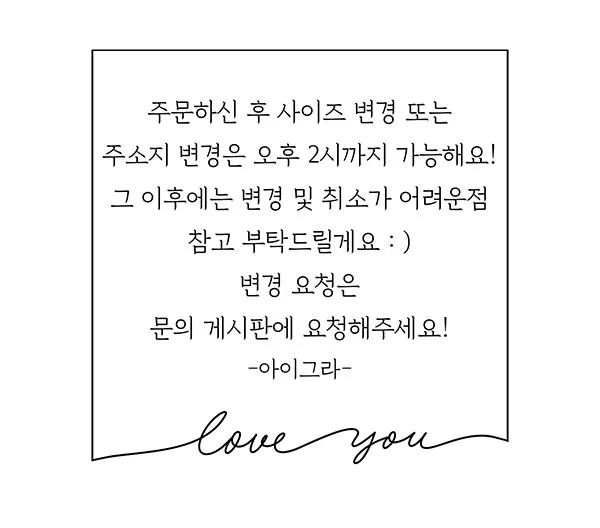 주문하신 후 사이즈 변경 또는
주소지 변경은 오후 2시까지 가능해요!
그 이후에는 변경 및 취소가 어려운점
참고 부탁드릴게요 : )
변경 요청은
문의 게시판에 요청해주세요!
-아이그라-
love you